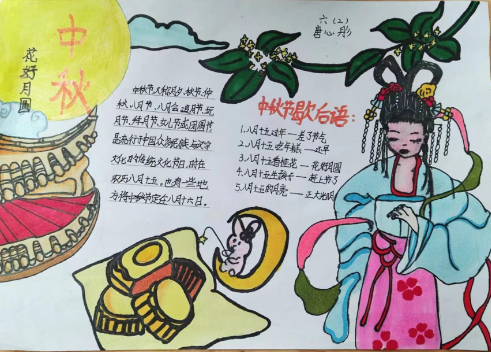 中秋
花好月圆
六(2)
唐心彤
中秋节又称月夕、秋节、仲
秋、八月节、八月会、追月节、玩
月节、拜月节、女儿节或团圆节
是流行于中国众多民族与汉字
文化的传统文化节日,时在
农历八月十五。也有一些地
方将中秋节定在八月十六日。
中秋节歇后语:
1.八月十五过年——差了节气
2.八月十五种花生——
3.八月十五看桂花——花好月圆
4.八月十五生孩子——赶上节了
5.八月十五的月亮——正大光明